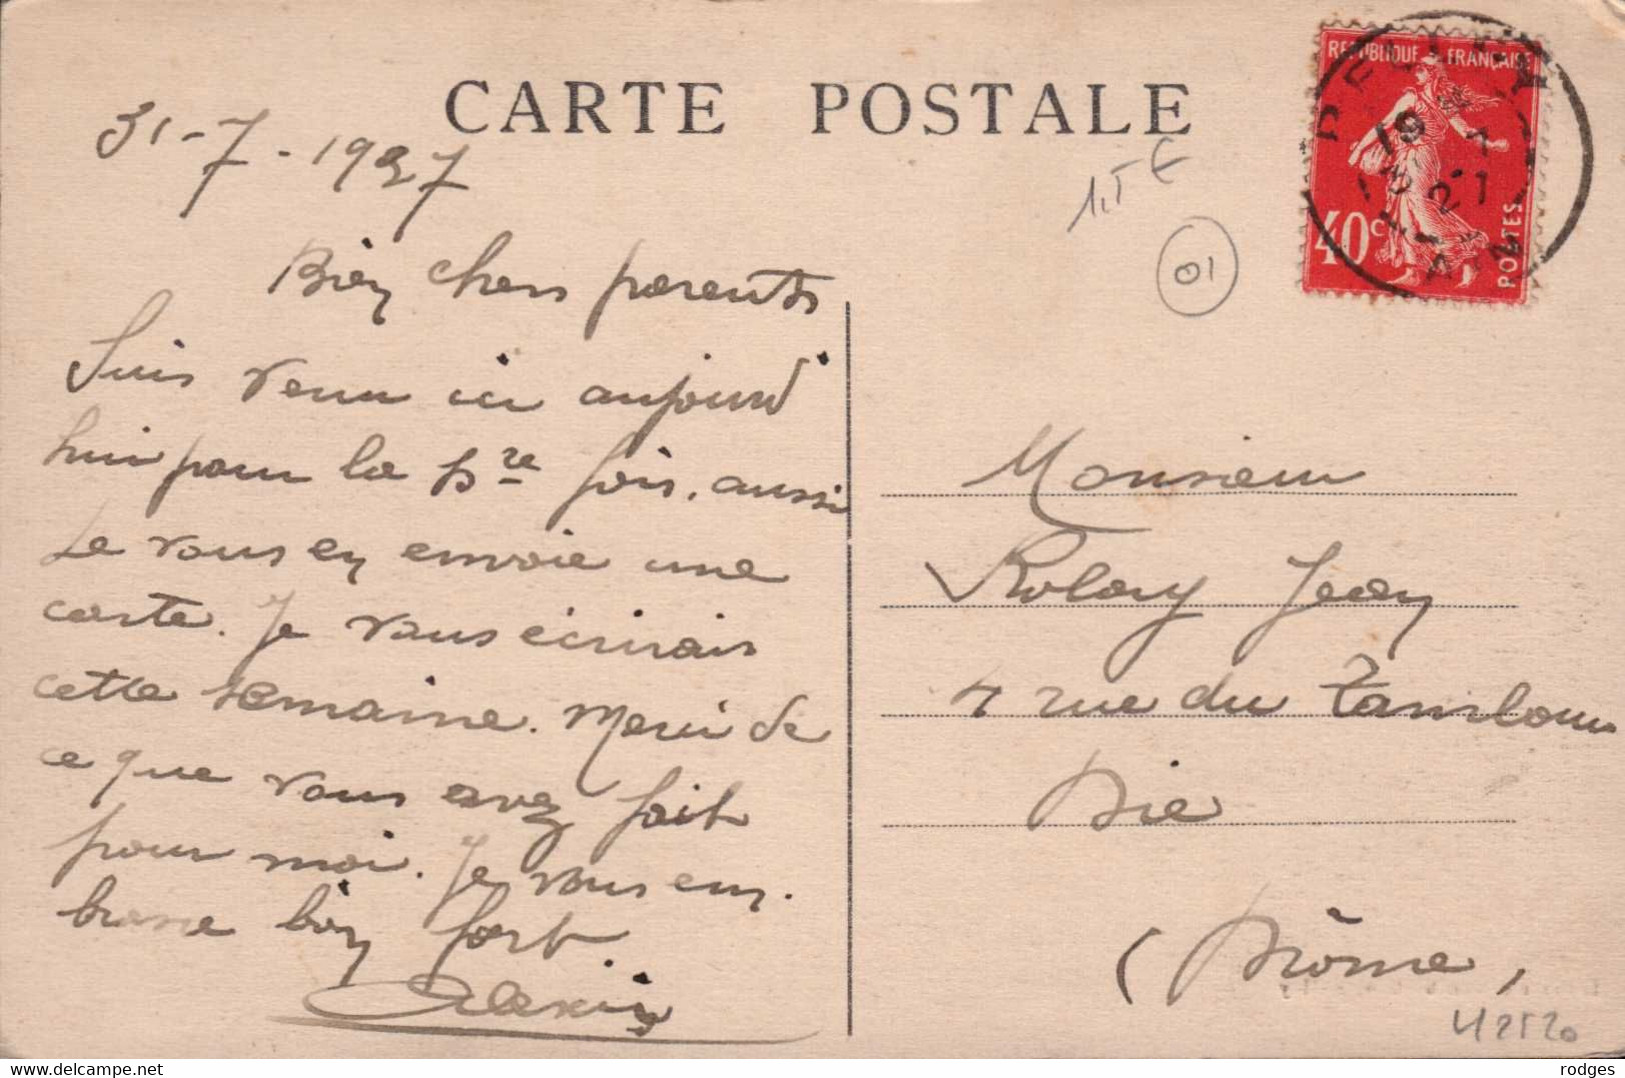 CARTE POSTALE
31-7-1927
Bien chers parents
Suis venu ici aujourd'
hui pour la 1re fois, aussi
je vous en envoie une
carte. Je vous écrirais
cette semaine. Merci de
ce que vous avez fait
pour moi. Je vous em-
brasse bien fort.
Alexis
REPUBLIQUE FRANÇAISE
40c
POSTES
BELLEY
19 * 7
31 -7
27
AIN
1,5 €
01
Monsieur
Jean
4 rue du
Die
(Drôme)
42520
rodges